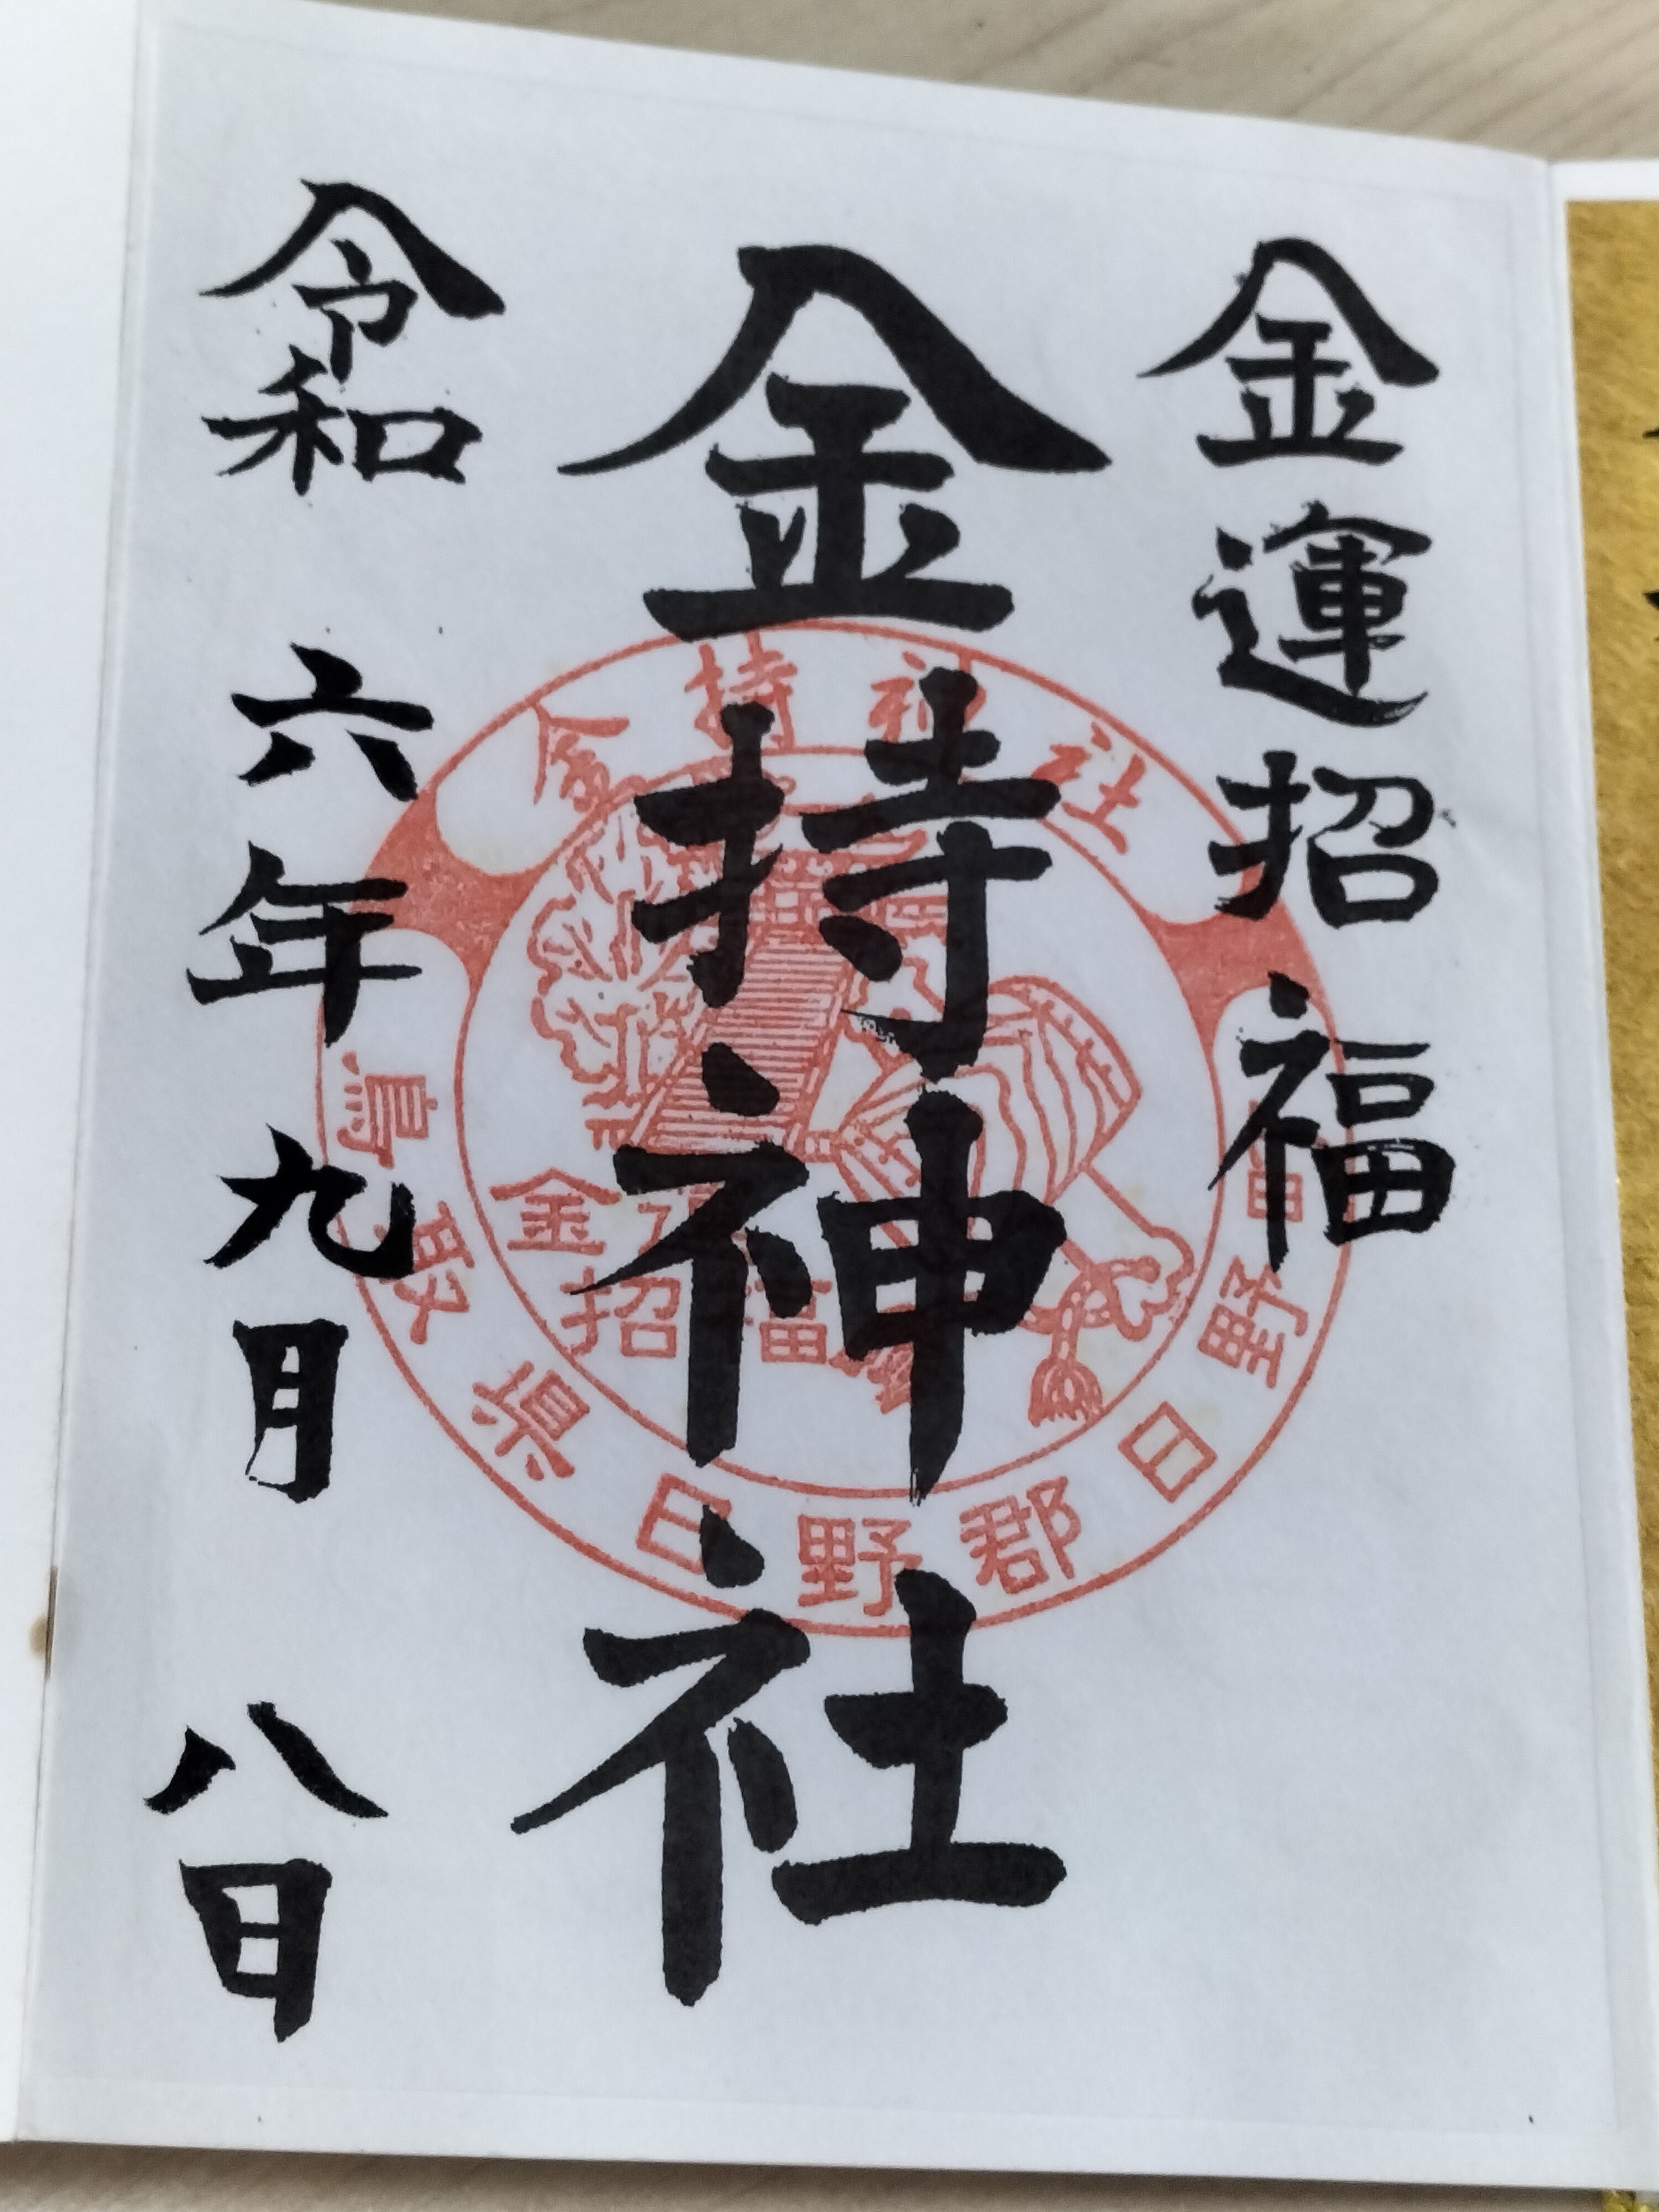 金運招福
金持神社
令和六年九月八日
金持神社
鳥取県日野郡日野
金
招福